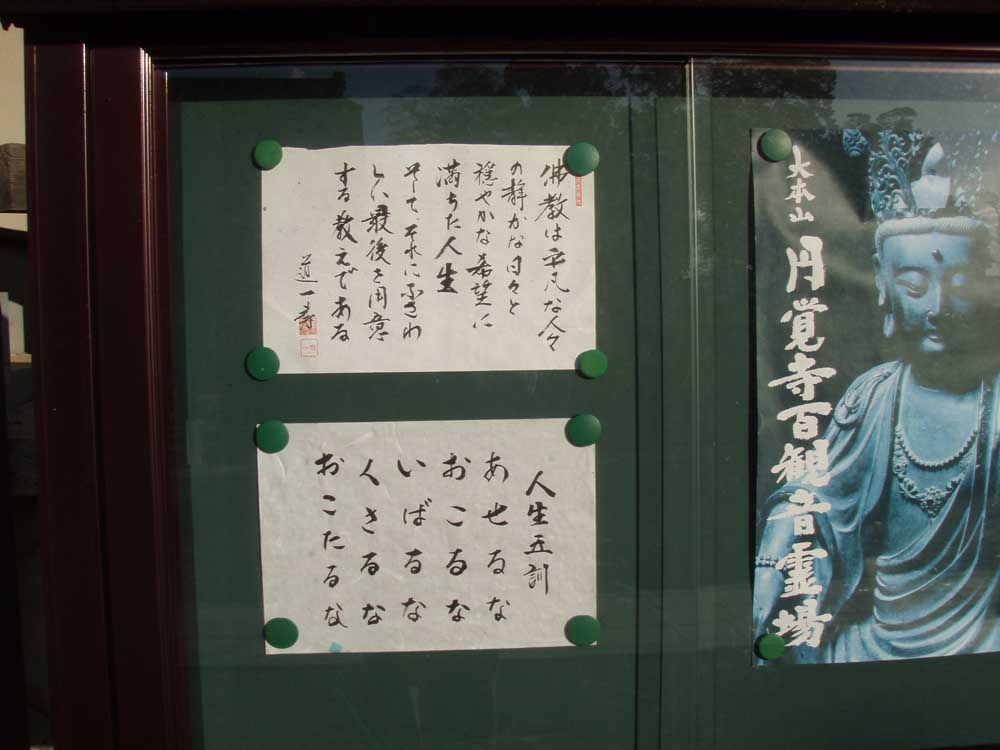 佛教は平凡な人々
の静かな日々と
穏やかな希望に
満ちた人生
そして、それにふさわ
しい最後を用意
する教えである
道一寿
人生五訓
あせるな
おこるな
いばるな
くさるな
おこたるな
大本山
円覚寺百観音霊場